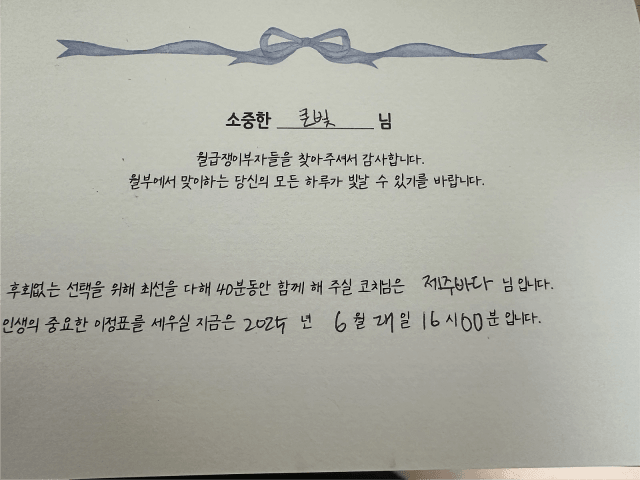 소중한 큰빛 님
월급쟁이부자들을 찾아주셔서 감사합니다.
월부에서 맞이하는 당신의 모든 하루가 빛날 수 있기를 바랍니다.
후회없는 선택을 위해 최선을 다해 40분동안 함께 해 주실 코치님은 제주바다 님 입니다.
인생의 중요한 이정표를 세우실 지금은 2025 년 6 월 일 16 시 00 분 입니다.